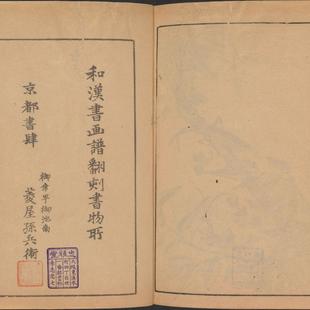 和漢書画譜翻刻書物所
京都書肆
御幸町御池南
菱屋孫兵衛